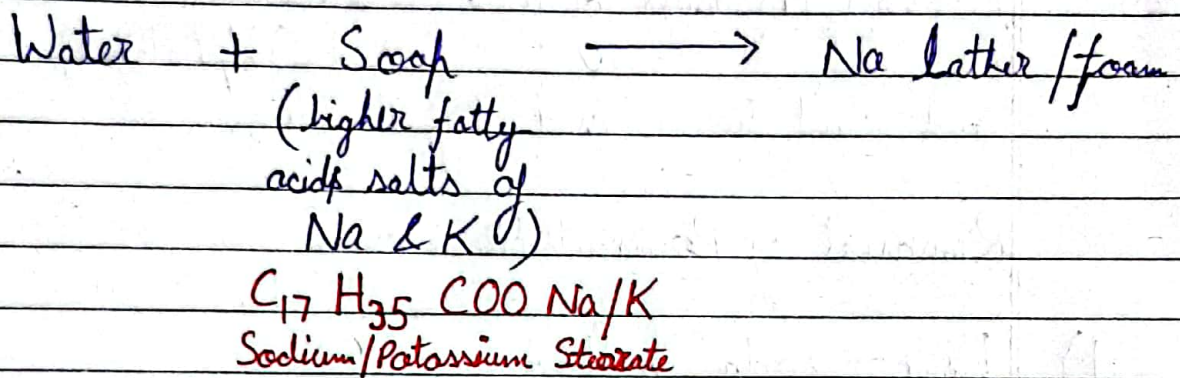 Water + Soap → Na lather/foam
(higher fatty
acids salts of
Na & K)
C₁₇ H₃₅ COO Na/K
Sodium/Potassium Stearate